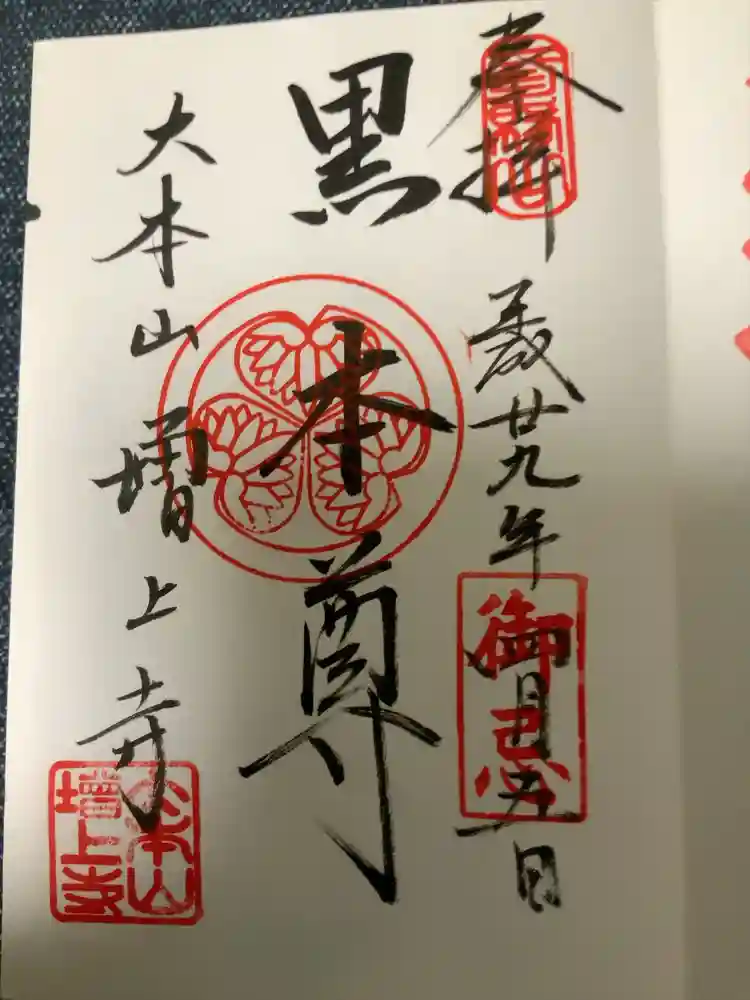 奉拝
平成廿九年四月五日
御忌
黒本尊
大本山増上寺
大本山
増上寺